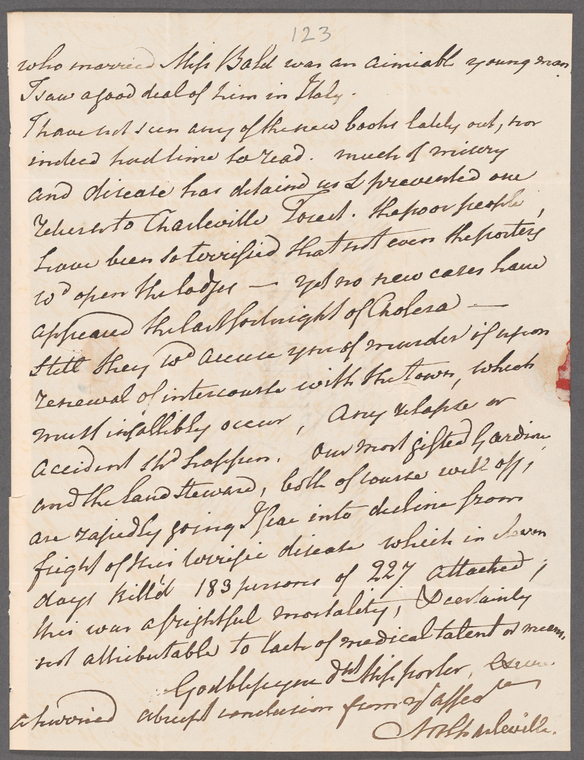 123
who married Miss Bald was an aimiable young man
I saw a good deal of him in Italy.
I have not seen any of the new books lately out, nor
indeed had time to read. much of misery
and disease has detained us & prevented our
return to Charleville Forest. the poor people,
have been so terrified that not even the porters
wd open the lodges — yet no new cases have
appeared the last fortnight of Cholera —
still they wd accuse you of murder if upon
renewal of intercourse with the town, which
must infallibly occur, any relapse or
accident shd happen. our most gifted Gardiner
and the land steward, both of course well off,
are rapidly going I fear into decline from
fright of this terrific disease which in seven
days kill'd 183 persons of 227 attacked;
this was a frightful mortality, & certainly
not attributable to lack of medical talent or means.
God bless you dr Miss porter, excuse
a hurried abrupt conclusion from yr affecte
Charleville.